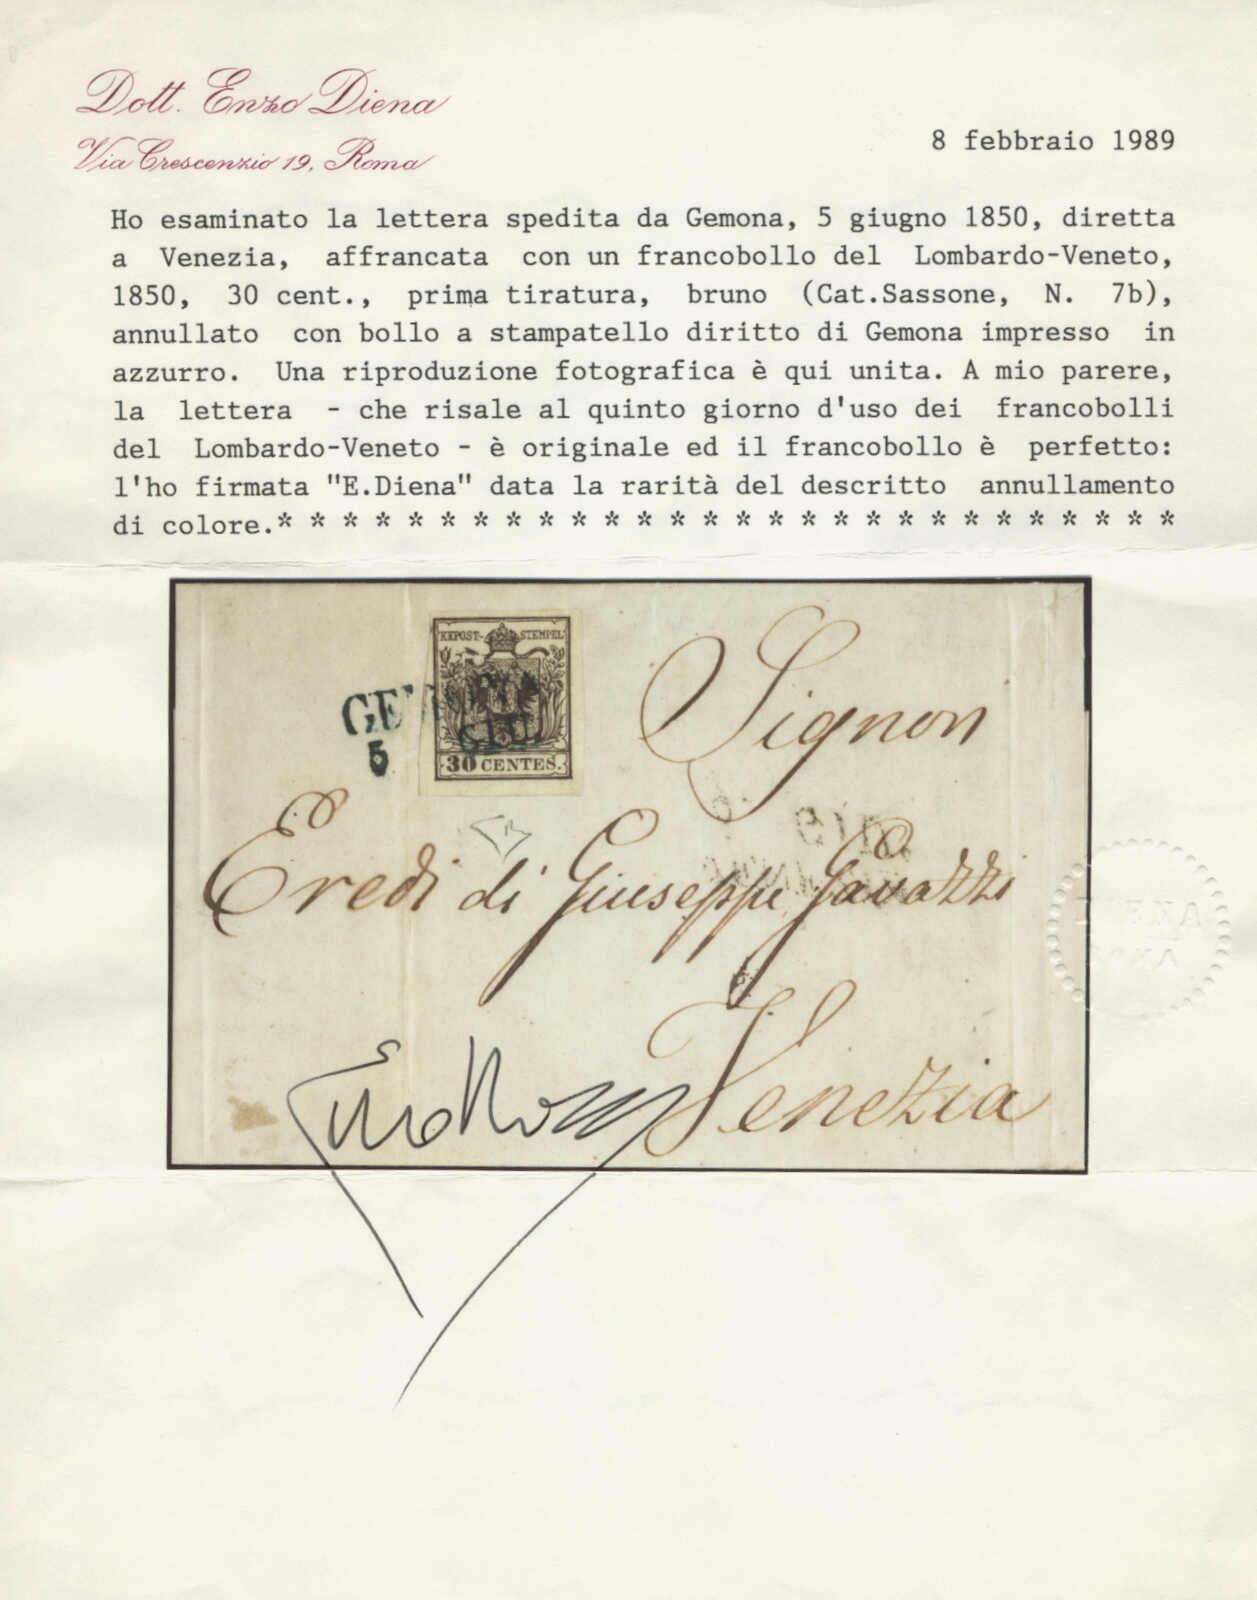 Dott. Enzo Diena
Via Crescenzio 19, Roma
8 febbraio 1989
Ho esaminato la lettera spedita da Gemona, 5 giugno 1850, diretta
a Venezia, affrancata con un francobollo del Lombardo-Veneto,
1850, 30 cent., prima tiratura, bruno (Cat.Sassone, N. 7b),
annullato con bollo a stampatello diritto di Gemona impresso in
azzurro. Una riproduzione fotografica è qui unita. A mio parere,
la lettera - che risale al quinto giorno d'uso dei francobolli
del Lombardo-Veneto - è originale ed il francobollo è perfetto:
l'ho firmata "E.Diena" data la rarità del descritto annullamento
di colore.* * * * * * * * * * * * * * * * * * * * * * * * * * * *
KKPOST-STEMPEL
GEMONA
5 GIU.
30 CENTES.
Signori
Eredi di Giuseppe Gavazzi
Venezia